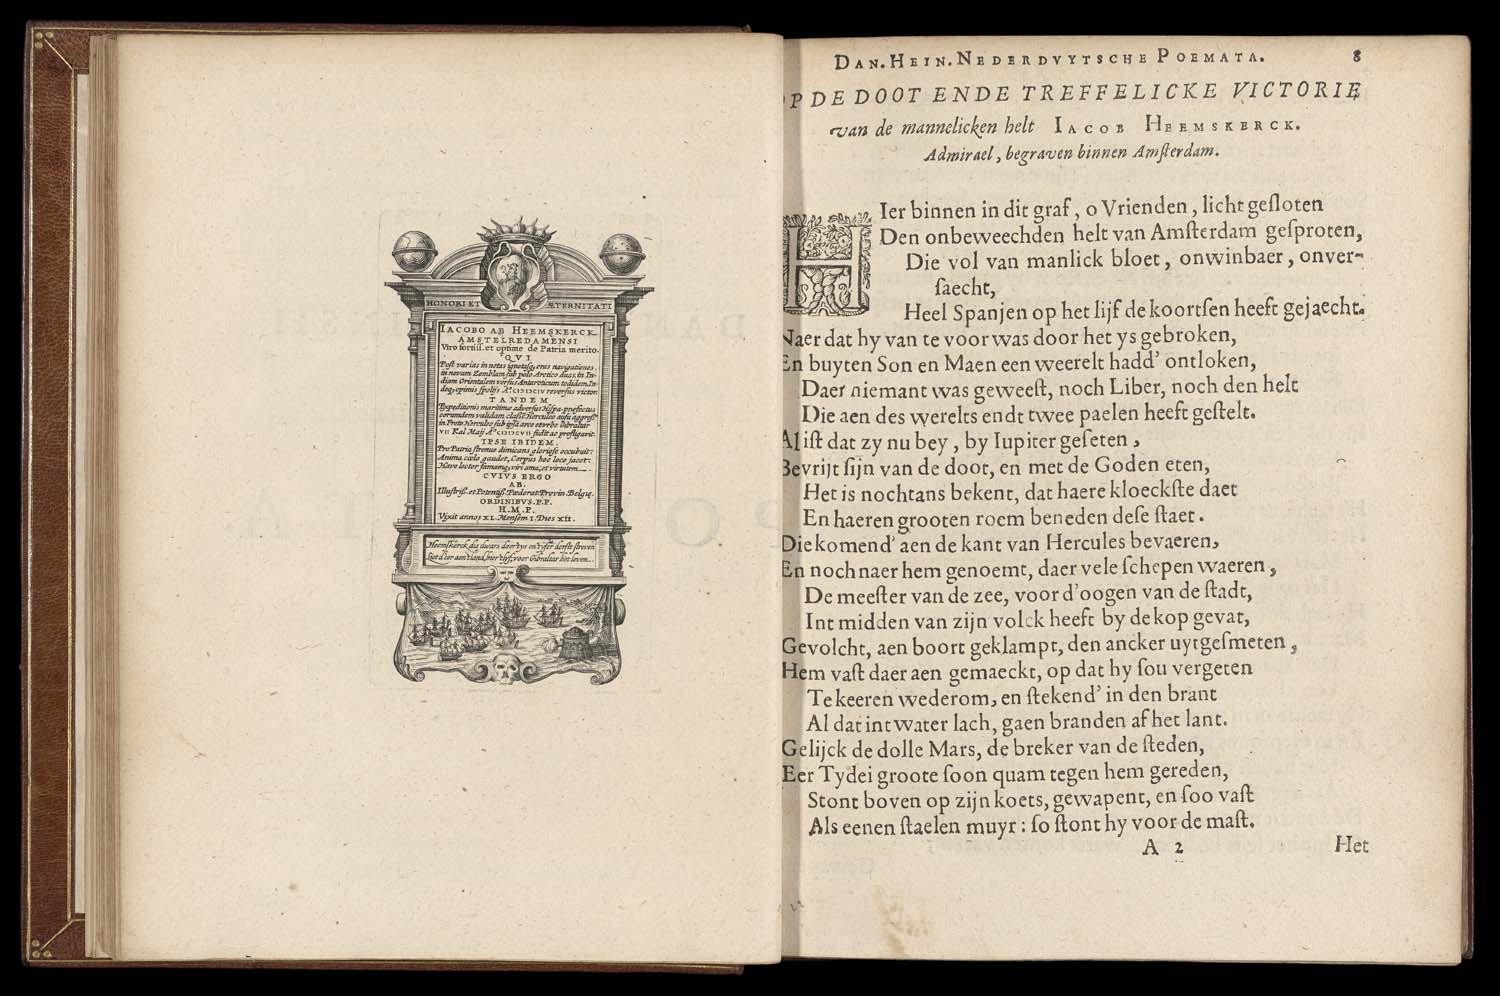 HONORI ET ÆTERNITATI
IACOBO AB HEEMSKERCK
AMSTELREDAMENSI
Viro fortiss. et optime de Patria merito.
QVI
Post varias in notas ignotasq; oras navigationes
in novam Zemblam sub polo Arctico duas, in In-
diam Orientalem versus Antarcticum totidem In-
deq; opimis spolijs Aº CIƆIƆCIV reversus victor
TANDEM
Expeditionis maritimæ adversus Hisp. præfectus
eorumdem validam classẽ Herculeo ausu aggress9
in Freto Herculeo sub ipsa arce et urbe Gibraltar
VII Kal Maij Aº CIƆIƆCVII fudit ac profligavit.
IPSE IBIDEM.
Pro Patria strenue dimicans gloriose occubuit:
Anima cælo gaudet, Corpus hoc loco jacet:
Have lector famamq; viri ama, et virtutem
CVIVS ERGO
AB.
Illustriss. et Potentiss. Fœderat. Provin. Belgiç.
ORDINIBVS. P.P.
H.M.P.
Vixit annos XL. Mensem I. Dies XII.
Heemskerck die dwars door ys en yser dorste streven
Liet d'eer aen t land, hier t lijf, voor Gibraltar het leven.
DAN. HEIN. NEDERDVYTSCHE POEMATA. 8
OP DE DOOT ENDE TREFFELICKE VICTORIE
van de mannelicken helt IACOB HEEMSKERCK.
Admirael, begraven binnen Amsterdam.
HIer binnen in dit graf, o Vrienden, licht gesloten
Den onbeweechden helt van Amsterdam gesproten,
Die vol van manlick bloet, onwinbaer, onver-
saecht,
Heel Spanjen op het lijf de koortsen heeft gejaecht.
Naer dat hy van te voor was door het ys gebroken,
En buyten Son en Maen een weerelt hadd' ontloken,
Daer niemant was geweest, noch Liber, noch den helt
Die aen des werelts endt twee paelen heeft gestelt.
Al ist dat zy nu bey, by Iupiter geseten,
Bevrijt sijn van de doot, en met de Goden eten,
Het is nochtans bekent, dat haere kloeckste daet
En haeren grooten roem beneden dese staet.
Die komend' aen de kant van Hercules bevaeren,
En noch naer hem genoemt, daer vele schepen waeren,
De meester van de zee, voor d'oogen van de stadt,
Int midden van zijn volck heeft by de kop gevat,
Gevolcht, aen boort geklampt, den ancker uytgesmeten,
Hem vast daer aen gemaeckt, op dat hy sou vergeten
Te keeren wederom, en stekend' in den brant
Al dat int water lach, gaen branden af het lant.
Gelijck de dolle Mars, de breker van de steden,
Eer Tydei groote soon quam tegen hem gereden,
Stont boven op zijn koets, gewapent, en soo vast
Als eenen staelen muyr: so stont hy voor de mast.
A 2 Het